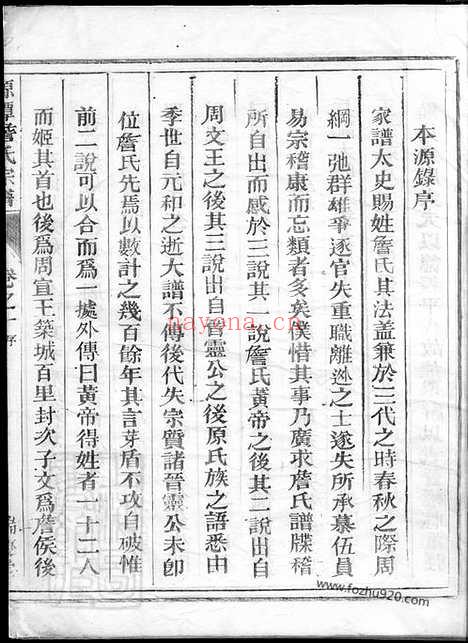 本源錄序
家譜太史賜姓詹氏其法盖兼於三代之時春秋之際周
綱一弛群雄爭逐官失重職離逊之士遂失所承慕伍員
易宗稽康而忘類者多矣僕惜其事乃廣求詹氏譜牒稽
所自出而感於三說其一說詹氏黃帝之後其二說出自
周文王之後其三說出自晉靈公之後原氏族之語悉由
季世自元和之逝大譜不傳後代失宗質諸晉靈公未卽
位詹氏先焉以數計之幾百餘年其言芽盾不攻自破惟
前二說可以合而爲一據外傳曰黃帝得姓者一十二人
而姬其首也後爲周宣王築城百里封次子文爲詹侯後
源潭詹氏宗譜
卷之一 序
nayona.cn
www.fozhu920.com